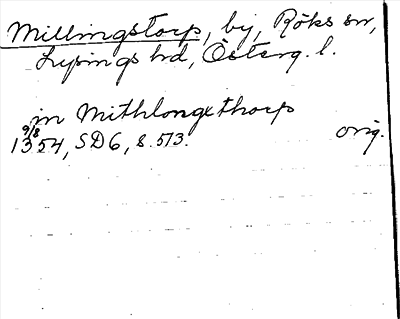 Millingstorp, by, Röks sn,
Lysings hd, Österg. l.
in Mithlongxthorp
9/8
1354, SD6, s. 513. orig.